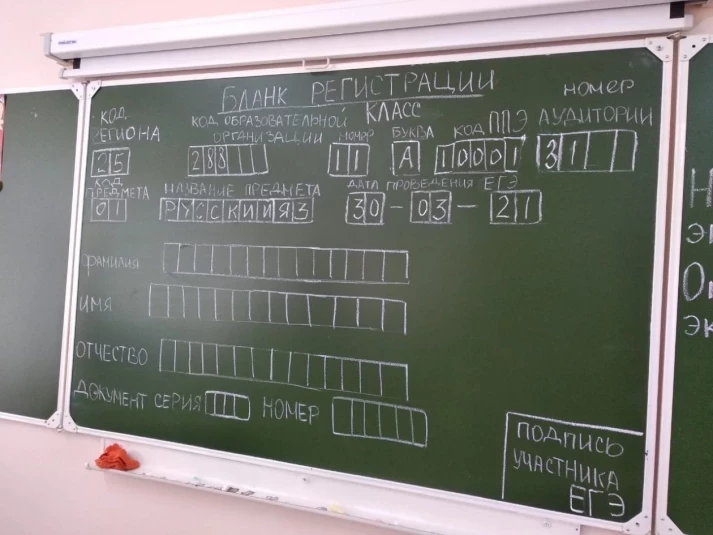 БЛАНК РЕГИСТРАЦИИ
КОД РЕГИОНА
25
КОД ОБРАЗОВАТЕЛЬНОЙ ОРГАНИЗАЦИИ
283
КЛАСС
НОМЕР БУКВА
11 А
КОД ППЭ
10001
НОМЕР АУДИТОРИИ
31
КОД ПРЕДМЕТА
01
НАЗВАНИЕ ПРЕДМЕТА
РУССКИЙЯЗ
ДАТА ПРОВЕДЕНИЯ ЕГЭ
30 - 03 - 21
ФАМИЛИЯ
ИМЯ
ОТЧЕСТВО
ДОКУМЕНТ СЕРИЯ НОМЕР
ПОДПИСЬ
УЧАСТНИКА
ЕГЭ